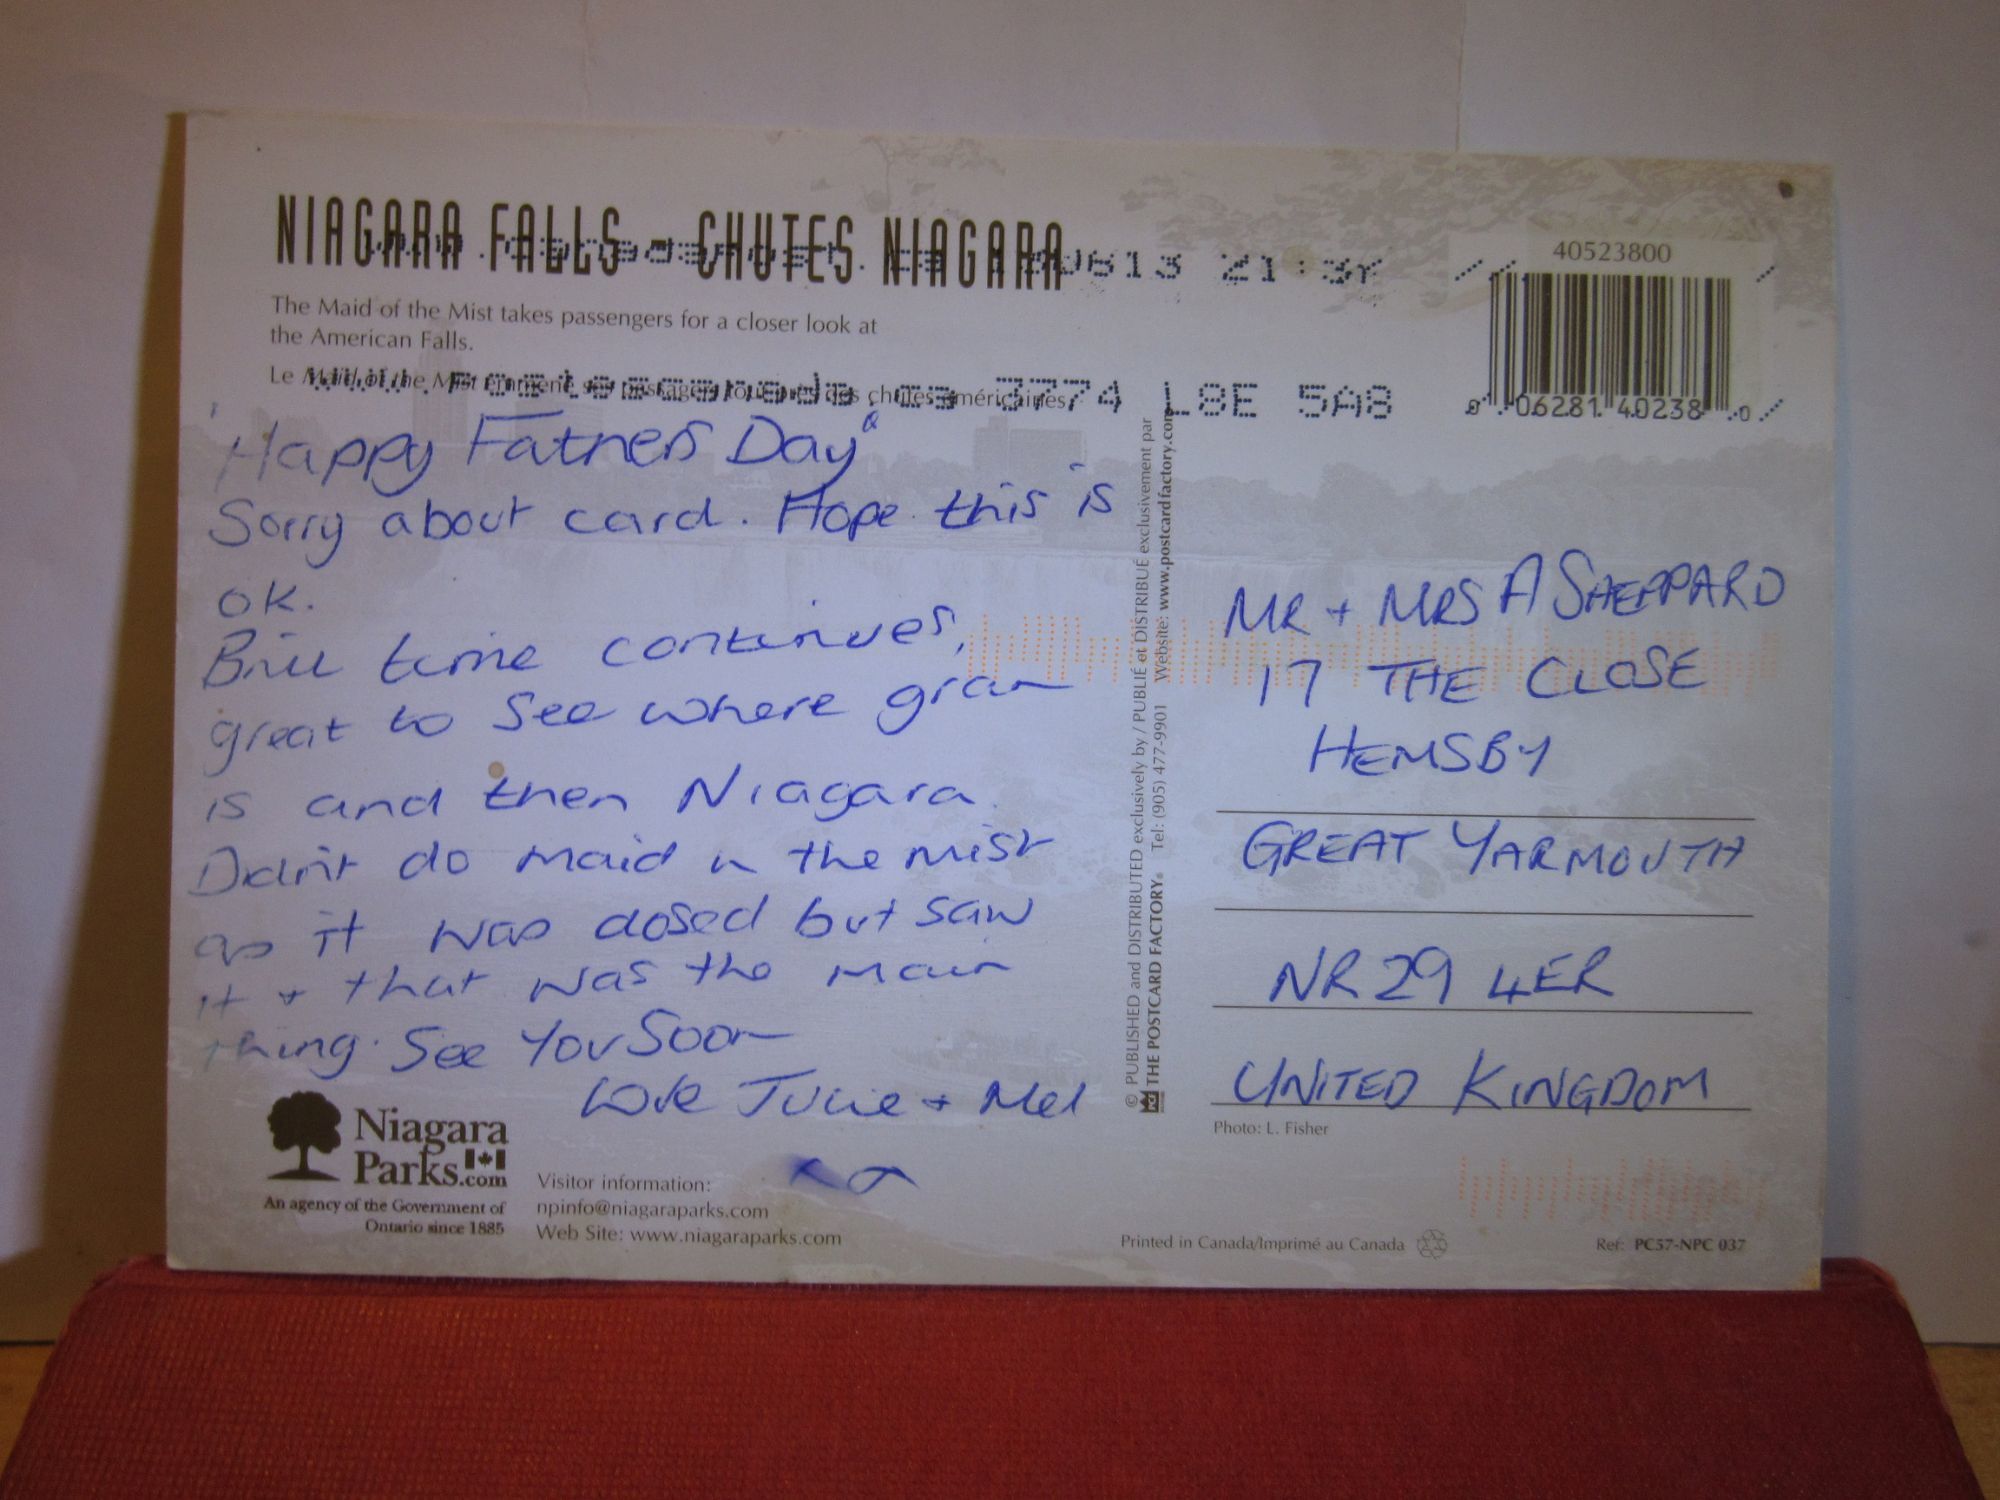 NIAGARA FALLS - CHUTES NIAGARA
0613 21:3
40523800
The Maid of the Mist takes passengers for a closer look at
the American Falls.
Le Maid of the Mist emmène ses passagers tout près des chutes américaines.
www.postescanada.ca 3774 L8E 5A8
0 06281 40238 0
"Happy Fathers Day"
Sorry about card. Hope this is
OK.
Brill time continues,
great to see where gran
is and then Niagara.
Didn't do maid n the mist
as it was closed but saw
it + that was the main
thing. See You Soon
Love Julie + Mel
MR + MRS A SHEPPARD
17 THE CLOSE
HEMSBY
GREAT YARMOUTH
NR29 4ER
UNITED KINGDOM
© PUBLISHED and DISTRIBUTED exclusively by / PUBLIÉ et DISTRIBUÉ exclusivement par
THE POSTCARD FACTORY. Tel: (905) 477-9901 Website: www.postcardfactory.com
Photo: L. Fisher
Niagara
Parks.com
An agency of the Government of
Ontario since 1885
Visitor information:
npinfo@niagaraparks.com
Web Site: www.niagaraparks.com
Printed in Canada/Imprimé au Canada
Ref: PC57-NPC 037